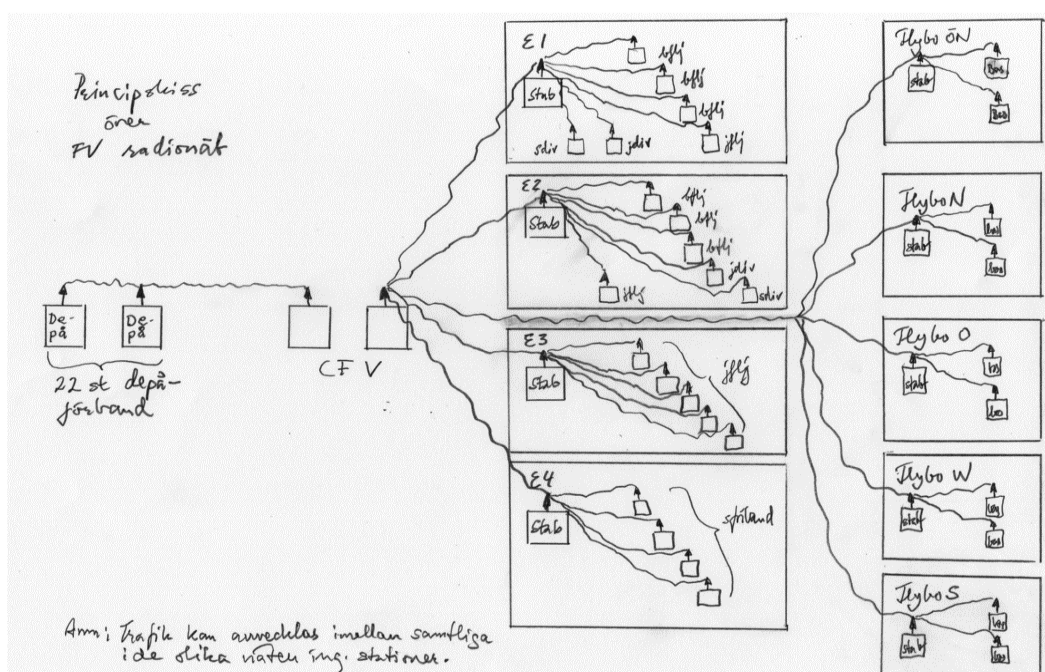 Principskiss
över
FV radionät
De-
på
De-
på
22 st depå-
förband
CFV
E1
stab
bflj
bflj
bflj
jflj
sdiv
jdiv
E2
Stab
bflj
bflj
bflj
jdiv
sdiv
jflj
E3
Stab
jflj
E4
Stab
spförband
Flybo ÖN
stab
Bas
Bas
Flybo N
stab
bas
bas
Flybo O
stab
bas
bas
Flybo W
stab
bas
bas
Flybo S
stab
bas
bas
Anm: Trafik kan avvecklas imellan samtliga
i de olika näten ing. stationer.